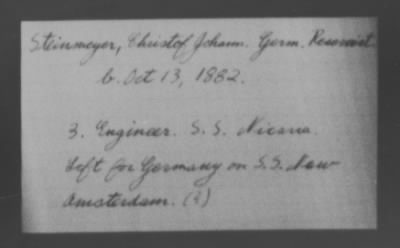 Steinmeyer, Christof Johann. Germ. Reservist
b. Oct 13, 1882.
3. Engineer. S.S. Nicaria.
Left for Germany on S.S. New
Amsterdam. (?)